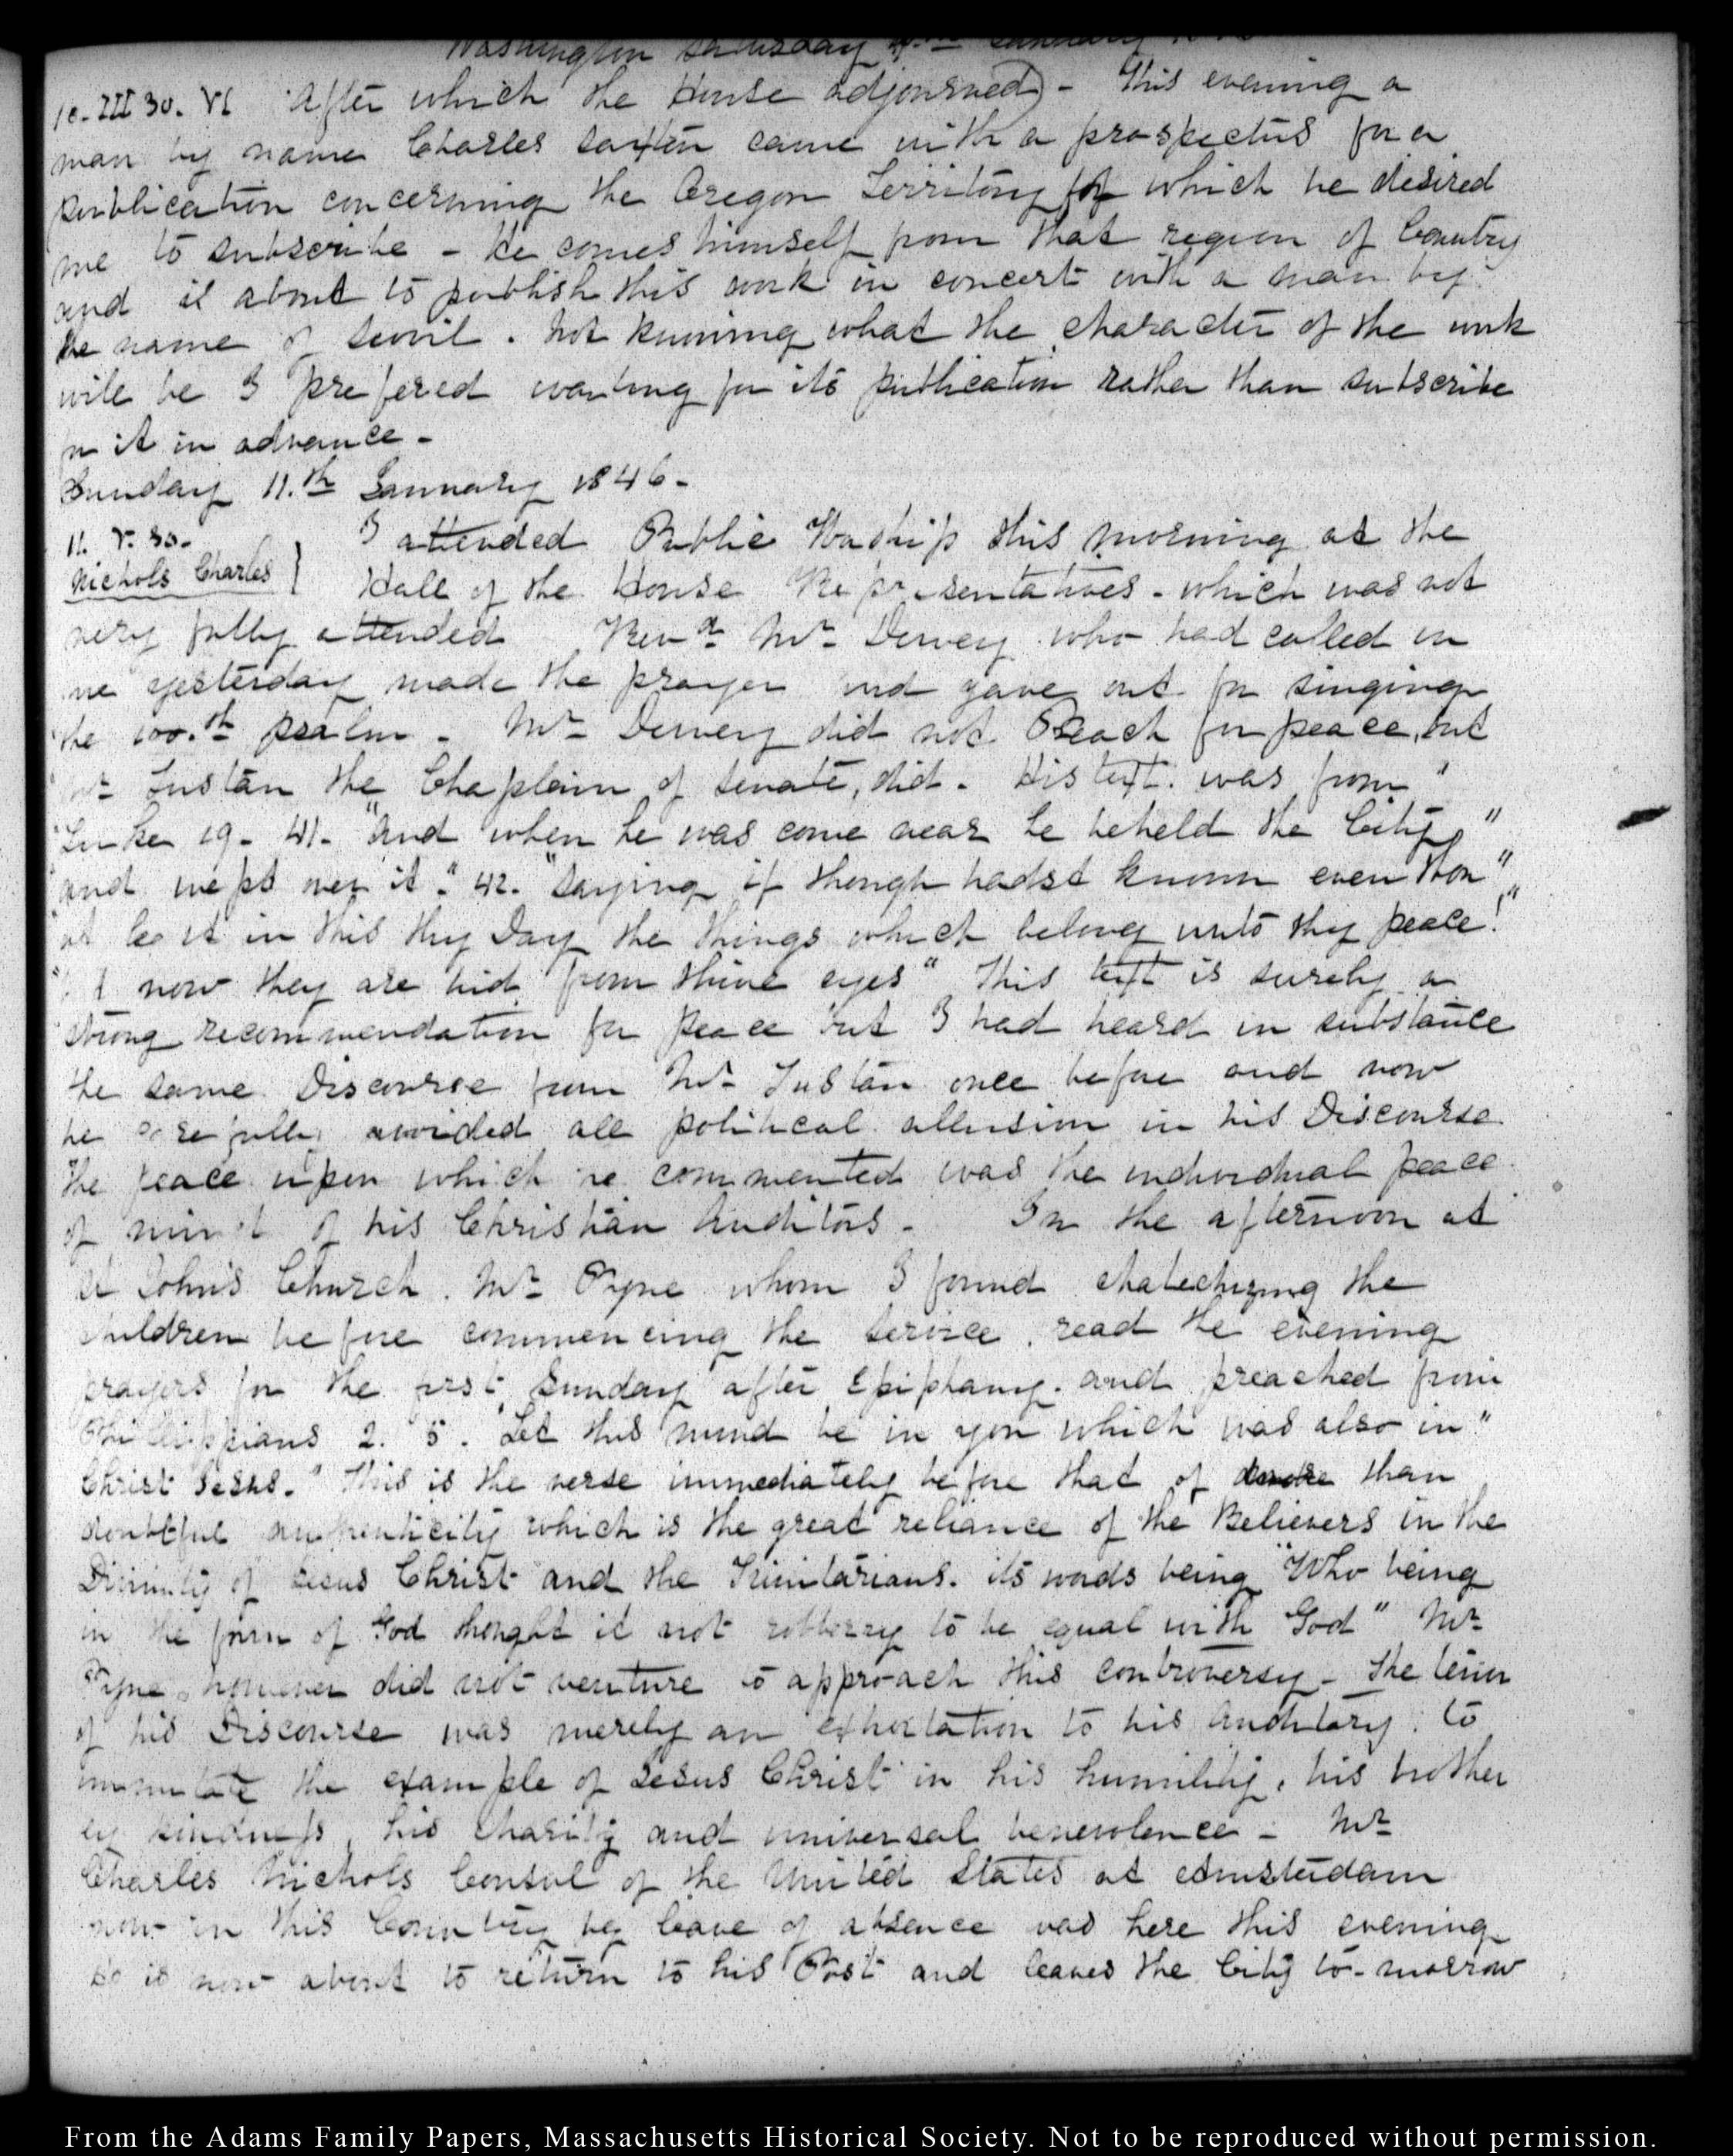 Washington Saturday January
10. III 30. VI After which the House adjourned) - This evening a
man by name Charles Saxton came with a prospectus for a
publication concerning the Oregon Territory for which he desired
me to subscribe - He comes himself from that region of Country
and is about to publish this work in concert with a man by
the name of . Not knowing what the character of the work
will be I prefered waiting for its publication rather than subscribe
for it in advance -
Sunday 11.th January 1846 -
11. V. 30.
Nichols Charles } I attended Public Worship this morning at the
Hall of the House Representatives - which was not
very fully attended Revd. Mr. Dewey who had called on
me yesterday made the prayer and gave out for singing
the 100.th psalm - Mr. Dewey did not Preach for peace, but
Mr. Tustan the Chaplain of Senate, did. His text was from "
"Luke 19. 41. "and when he was come near he beheld the City,"
"and wept over it." 42. "Saying if though hadst known even thou"
at least in this thy Day the things which belong unto thy peace!"
"but now they are hid from thine eyes" This text is surely a
strong recommendation for peace but I had heard in substance
the same Discourse from Mr. Tustan once before and now
he carefully avoided all political allusion in his Discourse
The peace upon which he commented was the individual peace
of mind of his Christian Auditors - In the afternoon at
St Johns Church. Mr. Pyne whom I found chatechizing the
children before commencing the service, read the evening
prayers for the first Sunday after Epiphany. and preached from
Phillippians 2. 5. "Let this mind be in you which was also in"
Christ Jesus." This is the verse immediately before that of more than
doubtful authenticity which is the great reliance of the Believers in the
Divinity of Jesus Christ and the Trinitarians. its words being "Who being
in the form of God thought it not robberry to be equal with God" Mr.
Pyne however did not venture to approach this controversy - The tenor
of his Discourse was merely an exhortation to his Auditory: to
immitate the example of Jesus Christ in his humility, his brother
ly kindness, his charity and universal benevolence - Mr.
Charles Nichols Consul of the United States at Amsterdam
now in this Country by leave of absence was here this evening
He is now about to return to his Post and leaves the City to-morrow
From the Adams Family Papers, Massachusetts Historical Society. Not to be reproduced without permission.